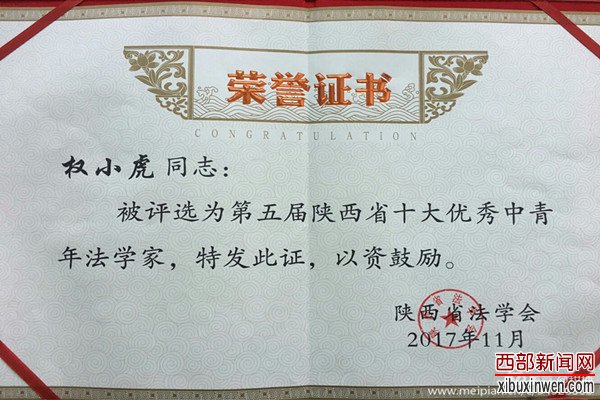 荣誉证书
CONGRATULATION
权小虎 同志：
被评选为第五届陕西省十大优秀中青
年法学家，特发此证，以资鼓励。
陕西省法学会
2017年11月
西部新闻网
xibuxinwen.com